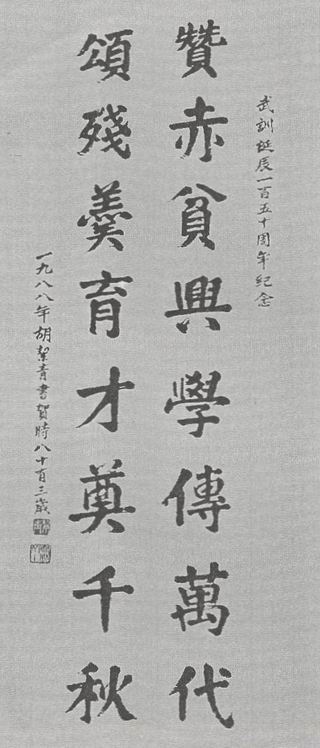 武訓誕辰一百五十周年紀念
贊赤貧興學傳萬代
頌殘羹育才奠千秋
一九八八年胡絜青書賀時八十有三歲